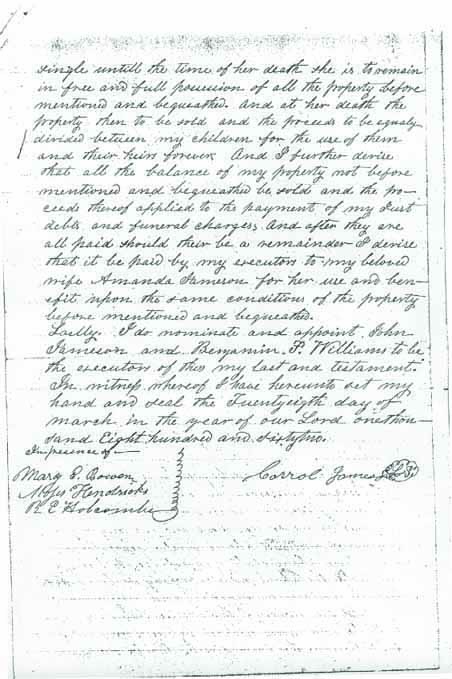 single untill the time of her death she is to remain
in free and full possession of all the property before
mentioned and bequeathed. And at her death the
property then to be sold and the proceeds to be equaly
divided between my children for the use of them
and their heirs forever. And I further devise
that all the balance of my property not before
mentioned and bequeathed be sold and the pro-
ceeds thereof applied to the payment of my Just
debts and funeral charges, And after they are
all paid should their be a remainder I devise
that it be paid by my executors to my beloved
wife Amanda Jameson for her use and ben-
efit upon the same conditions of the property
before mentioned and bequeathed.
Lastly. I do nominate and appoint John
Jameson and Benjamin P. Williams to be
the executors of this my last and testament.
In witness whereof I have hereunto set my
hand and seal the Twentyeigth day of
march in the year of our Lord onethou-
sand Eight hundred and sixtytwo.
In presence of
Mary E. Bowen
Moses Hendricks
R. E. Holcombe
Corrol Jameson